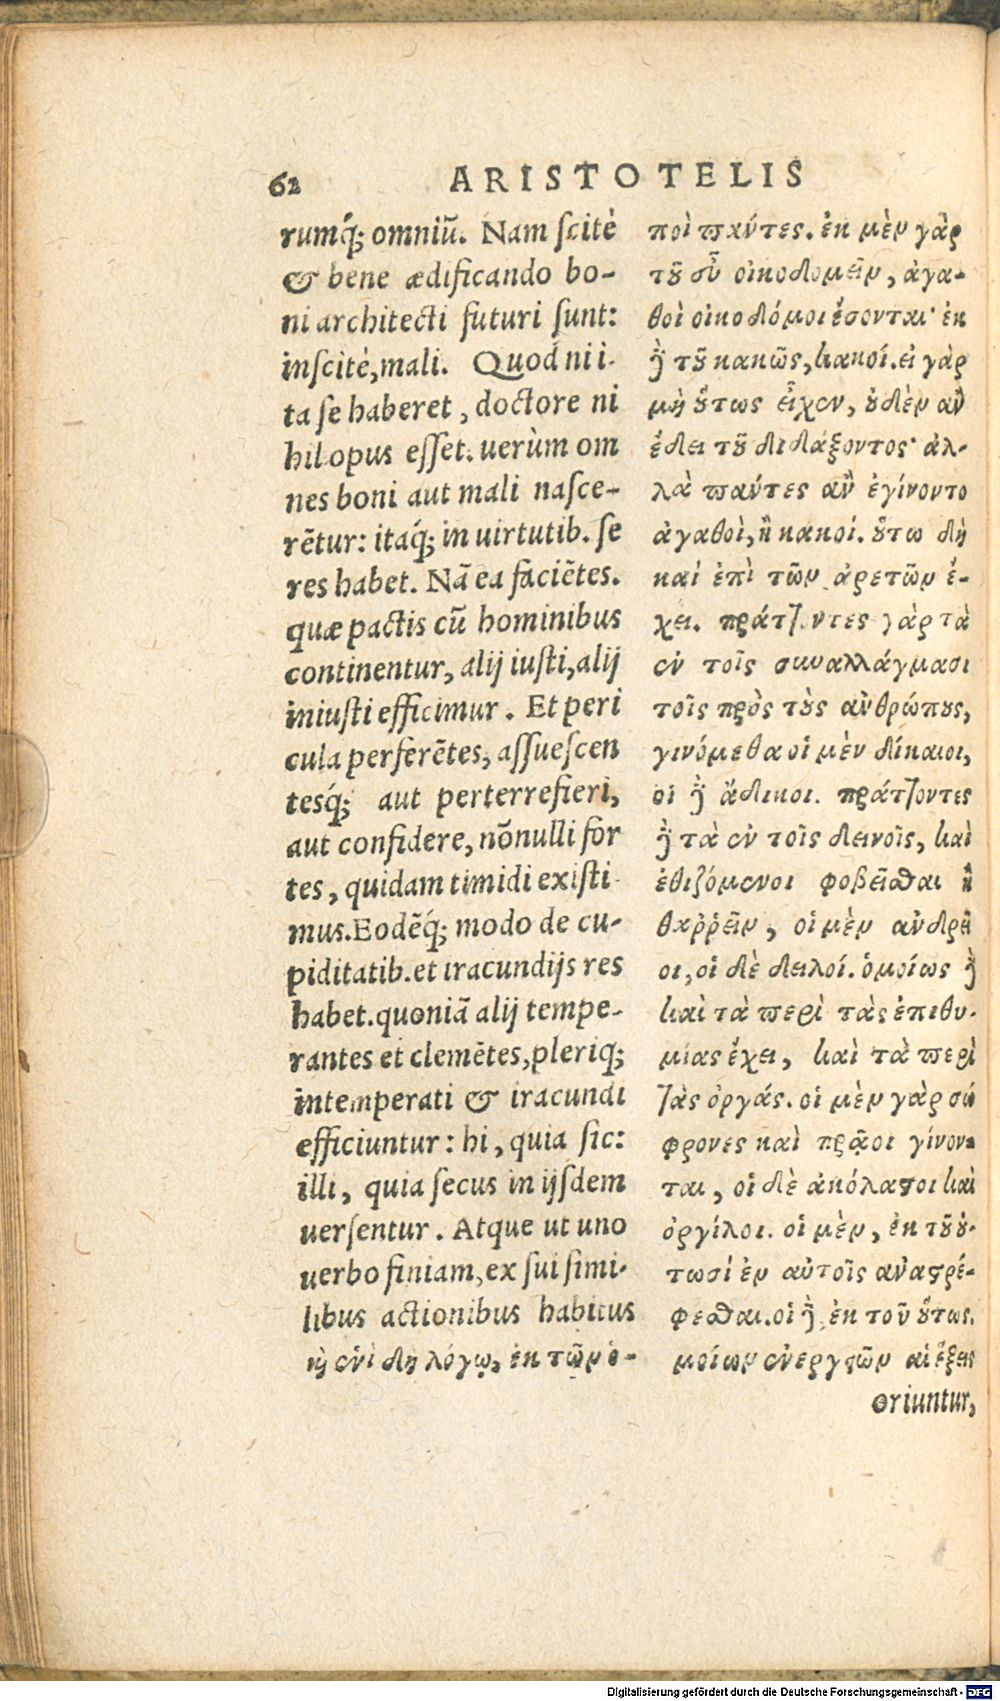 62 ARISTOTELIS
rumq́; omniũ. Nam ſcitè
& bene ædificando bo-
ni architecti futuri ſunt:
inſcitè, mali. Quod ni i-
ta ſe haberet, doctore ni
hil opus eſſet. uerùm om
nes boni aut mali naſce-
rẽtur: itaq́; in uirtutib. ſe
res habet. Nã ea faciẽtes.
quæ pactis cũ hominibus
continentur, alij iuſti, alij
iniuſti efficimur. Et peri
cula perferẽtes, aſſueſcen
tesq́; aut perterrefieri,
aut confidere, nõnulli for
tes, quidam timidi exiſti
mus. Eodẽq́; modo de cu-
piditatib. et iracundijs res
habet. quoniã alij tempe-
rantes et clemẽtes, pleriq;
intemperati & iracundi
efficiuntur: hi, quia ſic:
illi, quia ſecus in ijſdem
uerſentur. Atque ut uno
uerbo finiam, ex ſui ſimi-
libus actionibus habitus
ποὶ πάντες. ἐκ μὲν γὰρ
τοῦ εὖ οἰκοδομεῖν, ἀγα-
θοὶ οἰκοδόμοι ἔσονται· ἐκ
δὲ τοῦ κακῶς, κακοί. εἰ γὰρ
μὴ οὕτως εἶχεν, οὐδὲν ἂν
ἔδει τοῦ διδάξοντος· ἀλ-
λὰ πάντες ἂν ἐγίνοντο
ἀγαθοὶ, ἢ κακοί. οὕτω δὴ
καὶ ἐπὶ τῶν ἀρετῶν ἔ-
χει. πράττοντες γὰρ τὰ
ἐν τοῖς συναλλάγμασι
τοῖς πρὸς τοὺς ἀνθρώπους,
γινόμεθα οἱ μὲν δίκαιοι,
οἱ δὲ ἄδικοι. πράττοντες
δὲ τὰ ἐν τοῖς δεινοῖς, καὶ
ἐθιζόμενοι φοβεῖσθαι ἢ
θαῤῥεῖν, οἱ μὲν ἀνδρεῖ
οι, οἱ δὲ δειλοί. ὁμοίως δὲ
καὶ τὰ περὶ τὰς ἐπιθυ-
μίας ἔχει, καὶ τὰ περὶ
τὰς ὀργάς. οἱ μὲν γὰρ σώ
φρονες καὶ πρᾷοι γίνον-
ται, οἱ δὲ ἀκόλαστοι καὶ
ὀργίλοι. οἱ μὲν, ἐκ τοῦ οὑ-
τωσὶ ἐν αὐτοῖς ἀναστρέ-
φεσθαι. οἱ δὲ, ἐκ τοῦ οὕτως.
καὶ ἑνὶ δὴ λόγῳ, ἐκ τῶν ὁ- μοίων ἐνεργειῶν αἱ ἕξεις
oriuntur,
Digitalisierung gefördert durch die Deutsche Forschungsgemeinschaft - DFG